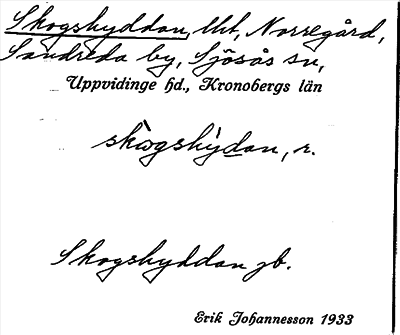 Skogshyddan, lht, Norregård,
Sandreda by, Sjösås sn,
Uppvidinge hd., Kronobergs län
skògshy̍dan, r.
Skogshyddan jb.
Erik Johannesson 1933